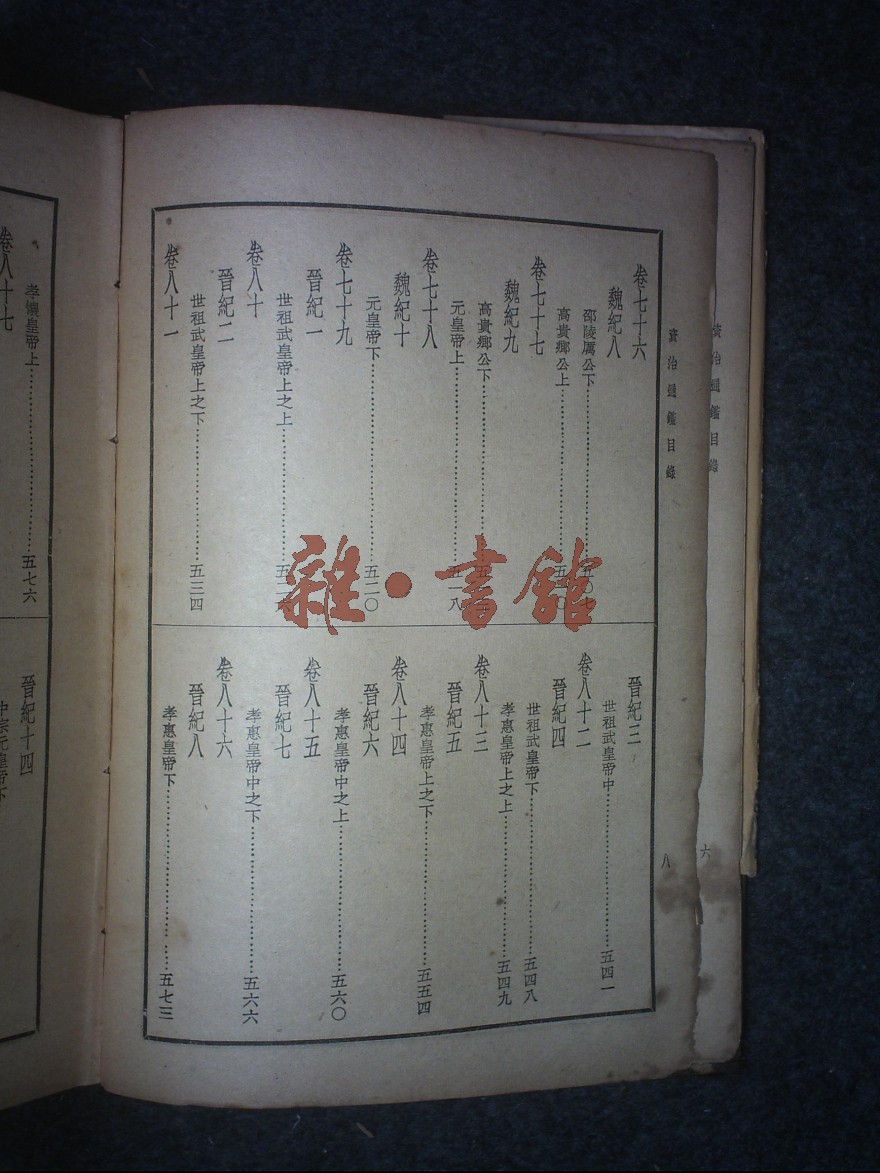 資治通鑑目錄
六
資治通鑑目錄
八
卷七十六
魏紀八
邵陵厲公下
高貴鄉公上
卷七十七
魏紀九
高貴鄉公下
元皇帝上……五一八
卷七十八
魏紀十
元皇帝下……五二〇
卷七十九
晉紀一
世祖武皇帝上之上
卷八十
晉紀二
世祖武皇帝上之下……五三四
卷八十一
晉紀三
世祖武皇帝中……五四一
卷八十二
晉紀四
世祖武皇帝下……五四八
孝惠皇帝上之上……五四九
卷八十三
晉紀五
孝惠皇帝上之下……五五四
卷八十四
晉紀六
孝惠皇帝中之上……五六〇
卷八十五
晉紀七
孝惠皇帝中之下……五六六
卷八十六
晉紀八
孝惠皇帝下……五七三
孝懷皇帝上……五七六
卷八十七
晉紀十四
中宗元皇帝下
雜·書館